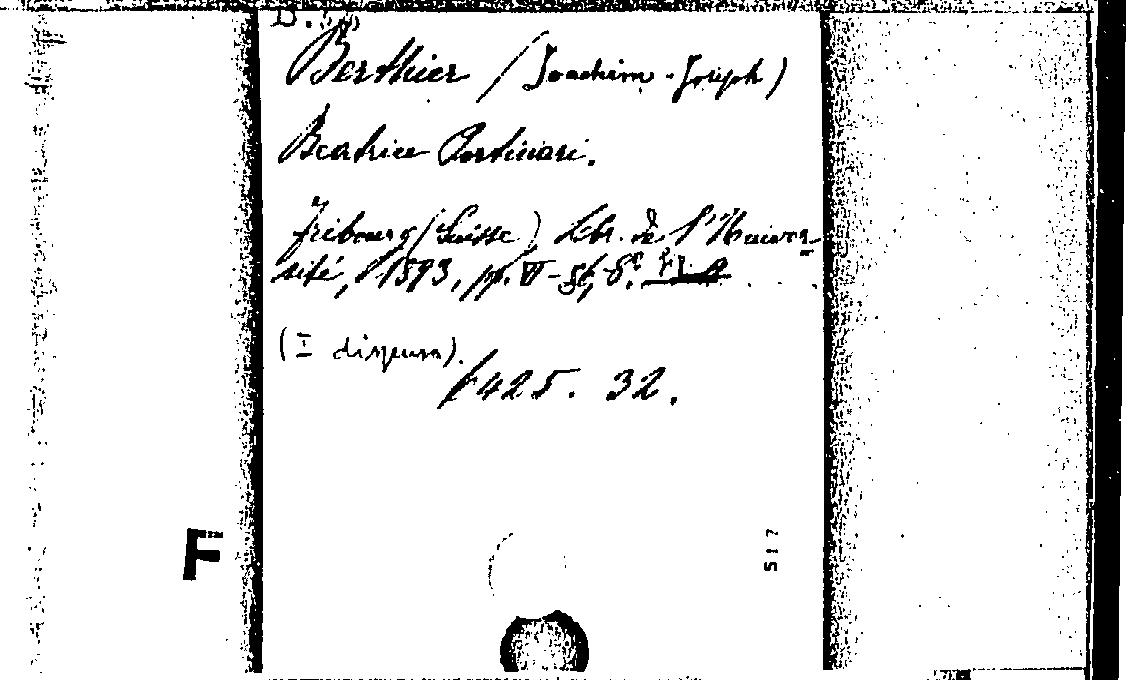 Berthier (Joachim-Joseph)
Beatrice Portinari.
Fribourg (Suisse), Libr. de l'Univer-
sité, 1893, pp. VI- 8°.
(I dispensa).
425. 32.
F
517